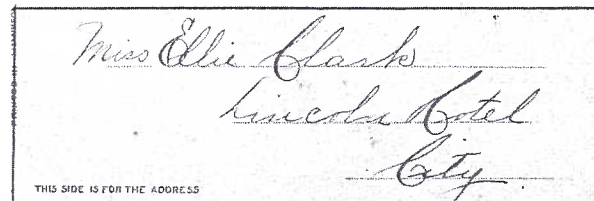 Miss Ellie Clark
Lincoln Hotel
City
THIS SIDE IS FOR THE ADDRESS